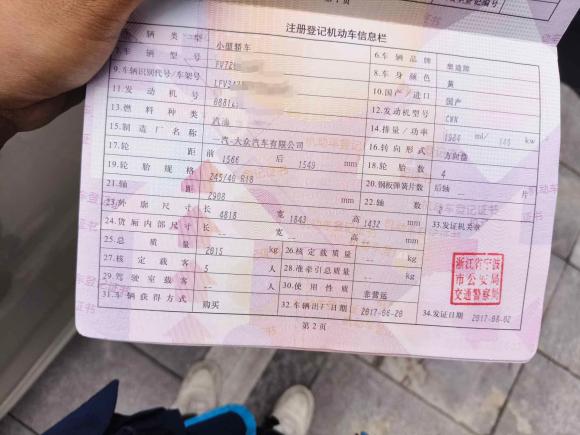 注册登记机动车信息栏
车辆类型 小型轿车 6.车辆品牌 奥迪牌
车辆型号 FV72 8.车身颜色 黄
9.车辆识别代号/车架号 LFV3A 10.国产/进口 国产
11.发动机号 0881 12.发动机型号 CWN
13.燃料种类 汽油 14.排量/功率 1984 ml/ kw
15.制造厂名称 一汽-大众汽车有限公司 16.转向形式 方向盘
17.轮距 前 1566 后 1549 mm 18.轮胎数 4
19.轮胎规格 245/40 R18 20.钢板弹簧片数 后轴 片
21.轴距 2908 mm 22.轴数 2
23.外廓尺寸 长 4818 宽 1843 高 1432 mm 33.发证机关章
24.货厢内部尺寸 长 -- 宽 -- 高 -- mm
25.总质量 2015 kg 26.核定载质量 -- kg
27.核定载客 5 人 28.准牵引总质量 -- kg
29.驾驶室载客 -- 人 30.使用性质 非营运
31.车辆获得方式 购买 32.车辆出厂日期 2017-06-20 34.发证日期 2017-08-02
浙江省宁波
市公安局
交通警察局
第2页